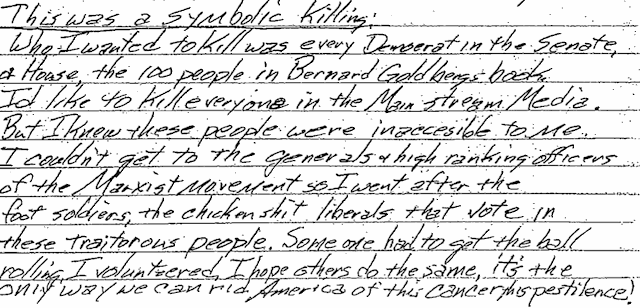 This was a symbolic killing.
Who I wanted to kill was every Democrat in the Senate,
& House, the 100 people in Bernard Goldbergs book.
I'd like to kill everyone in the Main stream Media.
But I knew these people were inaccesible to me.
I couldn't get to the generals & high ranking officers
of the Marxist movement so I went after the
foot soldiers, the chickenshit liberals that vote in
these traitorous people. Someone had to get the ball
rolling. I volunteered. I hope others do the same, it's the
only way we can rid America of this cancerous pestilence!